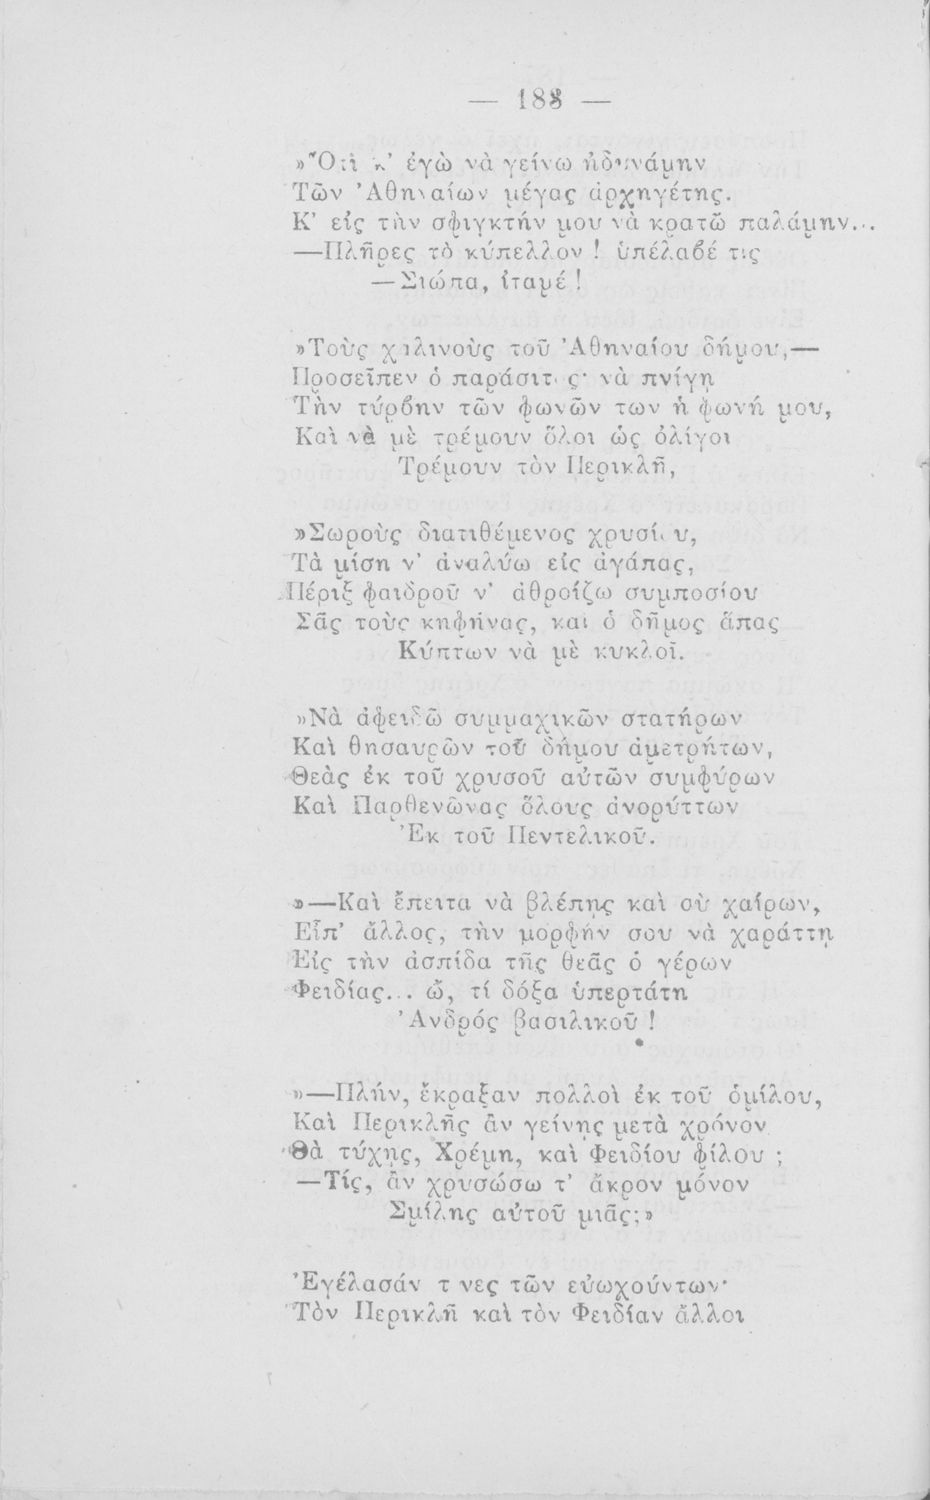 — 188 —
»Ὅτι κ’ ἐγὼ νὰ γείνω ἠδυνάμην
Τῶν Ἀθηναίων μέγας ἀρχηγέτης.
Κ’ εἰς τὴν σφιγκτήν μου νὰ κρατῶ παλάμην...
—Πλῆρες τὸ κύπελλον ! ὑπέλαβέ τις
— Σιώπα, ἰταμέ !
»Τοὺς χαλινοὺς τοῦ Ἀθηναίου δήμου,—
Προσεῖπεν ὁ παράσιτος· νὰ πνίγῃ
Τὴν τύρβην τῶν φωνῶν των ἡ φωνή μου,
Καὶ νὰ μὲ τρέμουν ὅλοι ὡς ὀλίγοι
Τρέμουν τὸν Περικλῆ,
»Σωροὺς διατιθέμενος χρυσίου,
Τὰ μίση ν’ ἀναλύω εἰς ἀγάπας,
Πέριξ φαιδροῦ ν’ ἀθροίζω συμποσίου
Σᾶς τοὺς κηφῆνας, καὶ ὁ δῆμος ἅπας
Κύπτων νὰ μὲ κυκλοῖ.
»Νὰ ἀφειδῶ συμμαχικῶν στατήρων
Καὶ θησαυρῶν τοῦ δήμου ἀμετρήτων,
Θεὰς ἐκ τοῦ χρυσοῦ αὐτῶν συμφύρων
Καὶ Παρθενῶνας ὅλους ἀνορύττων
Ἐκ τοῦ Πεντελικοῦ.
»—Καὶ ἔπειτα νὰ βλέπῃς καὶ σὺ χαίρων,
Εἶπ’ ἄλλος, τὴν μορφήν σου νὰ χαράττῃ
Εἰς τὴν ἀσπίδα τῆς θεᾶς ὁ γέρων
Φειδίας... ὤ, τί δόξα ὑπερτάτη
Ἀνδρός βασιλικοῦ !
»—Πλήν, ἔκραξαν πολλοὶ ἐκ τοῦ ὁμίλου,
Καὶ Περικλῆς ἂν γείνῃς μετὰ χρόνον
Θὰ τύχῃς, Χρέμη, καὶ Φειδίου φίλου ;
—Τίς, ἂν χρυσώσω τ’ ἄκρον μόνον
Σμίλης αὐτοῦ μιᾶς;»
Ἐγέλασάν τινες τῶν εὐωχούντων·
Τὸν Περικλῆ καὶ τὸν Φειδίαν ἄλλοι